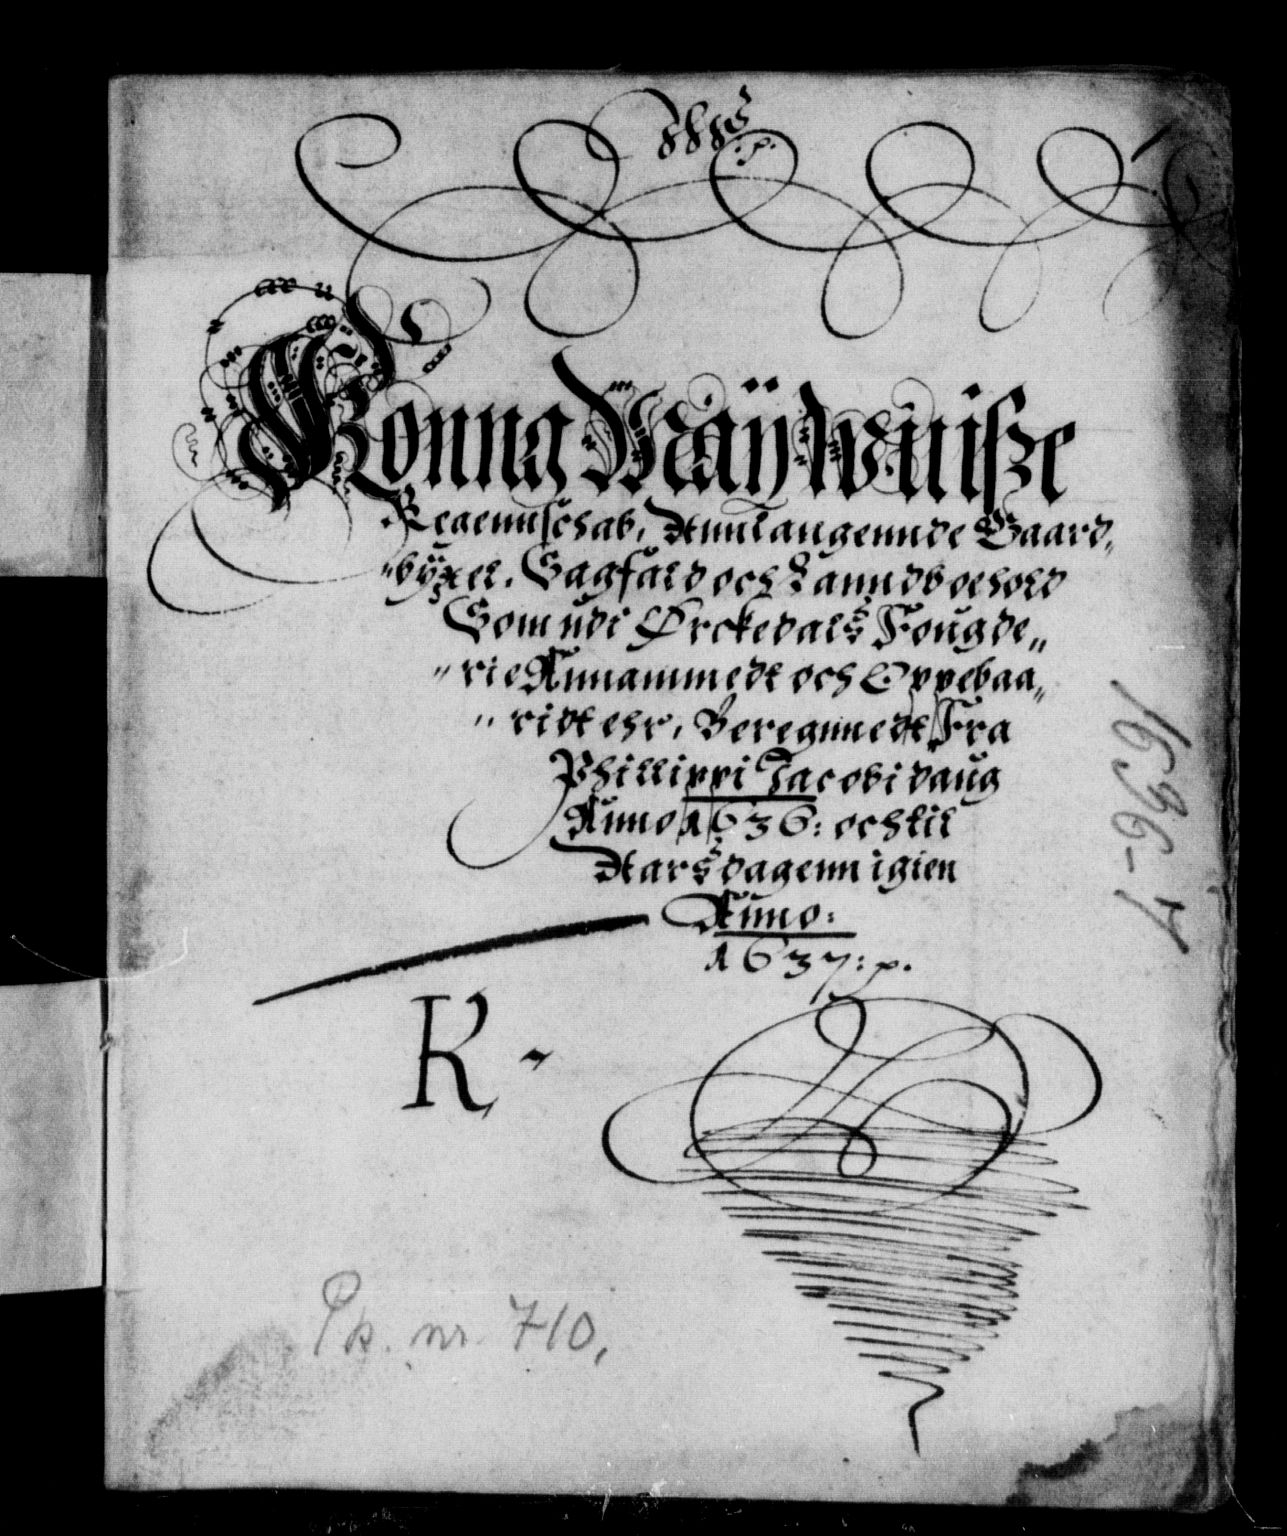 Konng Maÿ: Wnisze
Regennschab, Annlangennde Gaard„
„bÿxel. Sagfald och Lanndboehold
Som udi Ørckedals Fougde„
„rie Annammedt och Oppebaa„
„ridt ehr, Beregnnedt Fra
Phillippi Jacobi daug
Anno 1636: och til
Aarsdagenn igien
Anno:
1637: p.
K -
1636-7
Pk. nr. 710.